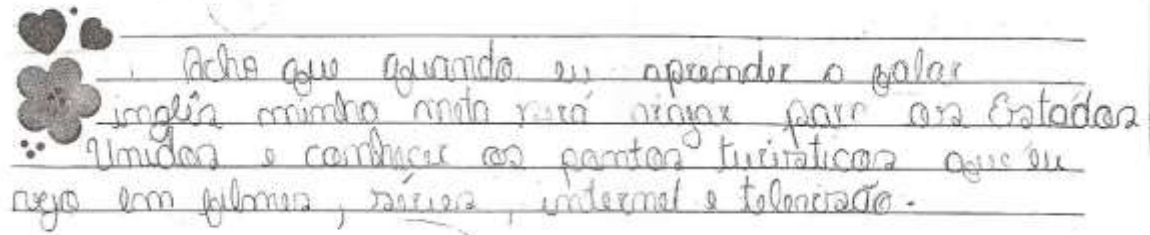 Acho que quando eu aprender a falar
inglês minha meta será viajar para os Estados
Unidos e conhecer os pontos turísticos que eu
vejo em filmes, séries, internet e televisão.